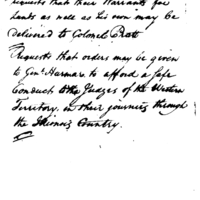 requests that their Warrants for
lands as well as his own may be
delivered to Colonel Pratt
Requests that orders may be given
to Genl. Harmar to afford a safe
Conduct to the Judges of the Western
Territory, in their journies through
the Illinois Country.